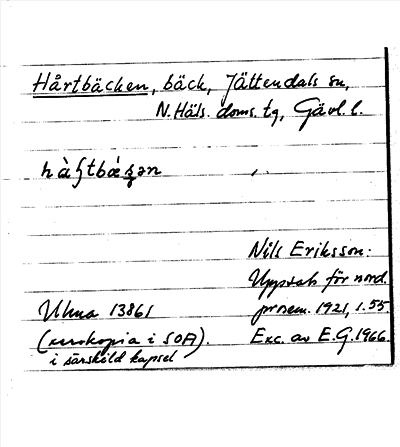 Hårtbäcken, bäck, Jättendals sn,
N.Häls. doms. tg, Gävl. l.
Nils Eriksson:
Uppsats för nord.
prosem. 1921, s. 55
Exc. av E.G. 1966
Ulma 13861
(xerokopia i SOA).
i särskild kapsel